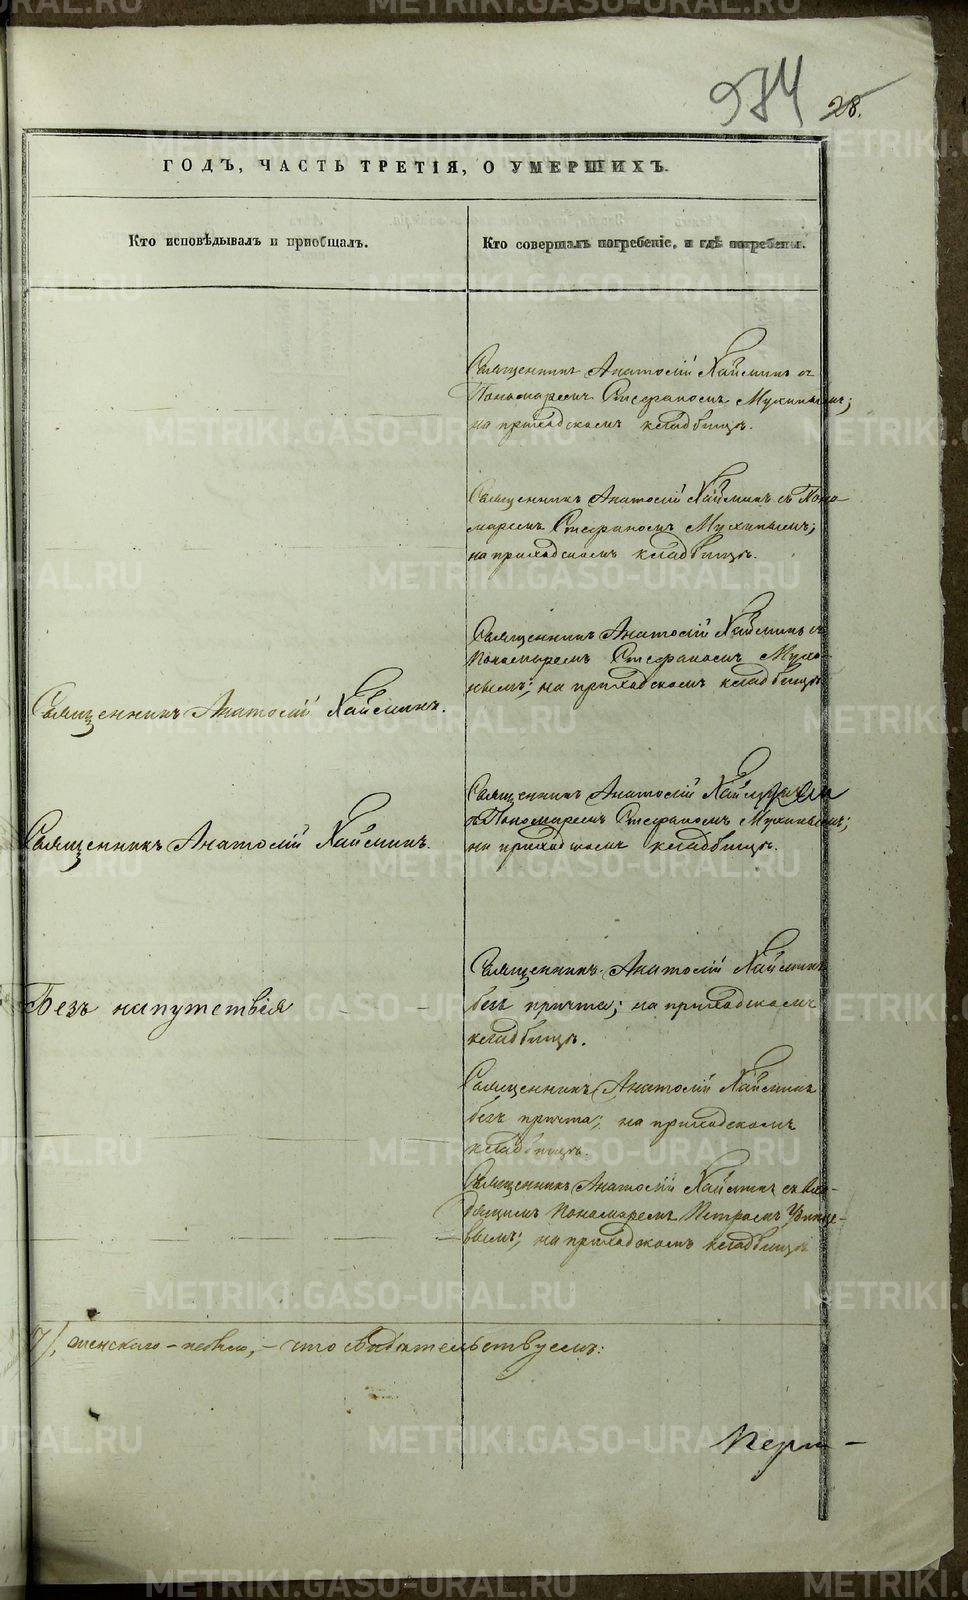 974 28.
ГОДЪ, ЧАСТЬ ТРЕТІЯ, О УМЕРШИХЪ.
Кто исповѣдывалъ и пріобщалъ.
Кто совершалъ погребеніе, и гдѣ погребены.
Священникъ Анатолій Хаймінъ съ
Пономаремъ Стефаномъ Мухинымъ;
на приходскомъ кладбищѣ.
Священникъ Анатолій Хаймінъ съ Поно
маремъ Стефаномъ Мухинымъ;
на приходскомъ кладбищѣ.
Священникъ Анатолій Хаймінъ.
Священникъ Анатолій Хаймінъ съ
Пономаремъ Стефаномъ Мухи-
нымъ; на приходскомъ кладбищѣ
Священникъ Анатолій Хаймінъ.
Священникъ Анатолій
съ Пономаремъ Стефаномъ Мухинымъ;
на приходскомъ кладбищѣ.
Безъ напутствія
Священникъ Анатолій Хаймінъ
безъ причта; на приходскомъ
кладбищѣ.
Священникъ Анатолій Хаймінъ
безъ причта; на приходскомъ
кладбищѣ.
Священникъ Анатолій Хаймінъ съ
Пономаремъ Петромъ
на приходскомъ кладбищѣ
7/, женскаго - что свидѣтельствуемъ:
METRIKI.GASO-URAL.RU